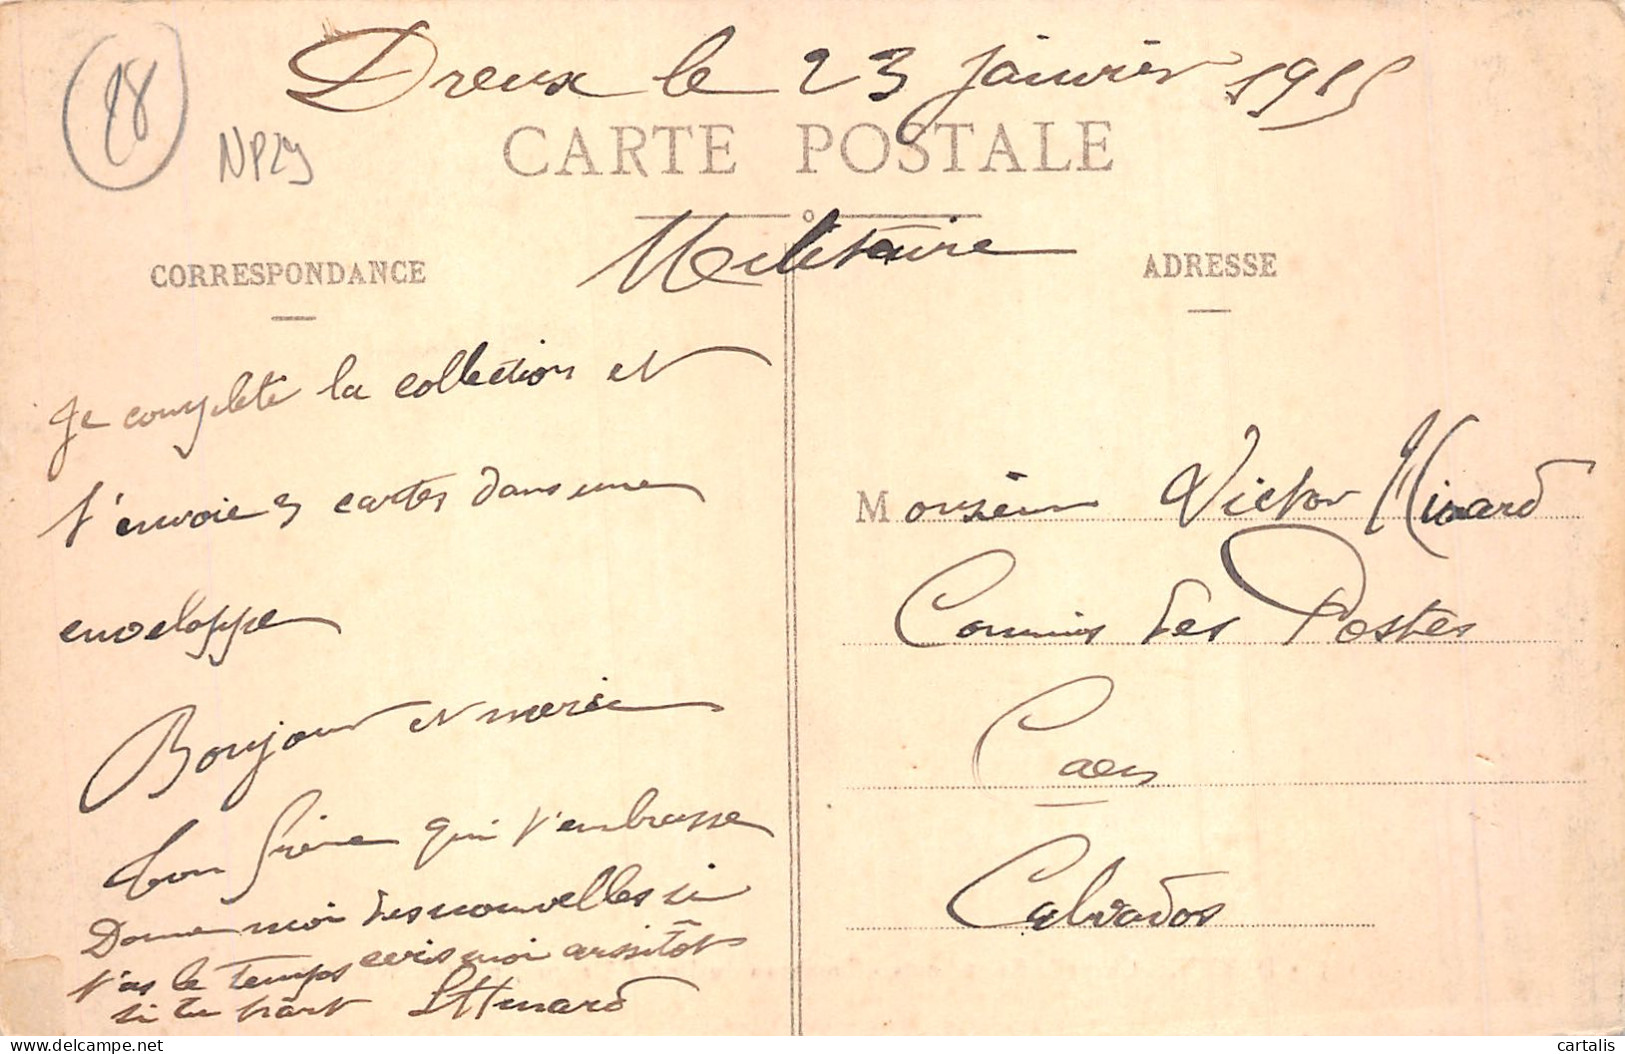 28
NP29
Dreux le 23 janvier 1915
CARTE POSTALE
Militaire
CORRESPONDANCE
ADRESSE
Je complète la collection et
t'envoie 3 cartes dans une
enveloppe
Bonjour et merci
Ton frère qui t'embrasse
Donne moi des nouvelles si
t'as le temps ecris moi aussitôt
si tu
Monsieur Victor
Commis des Postes
Caen
Calvados
cartalis
delcampe.net